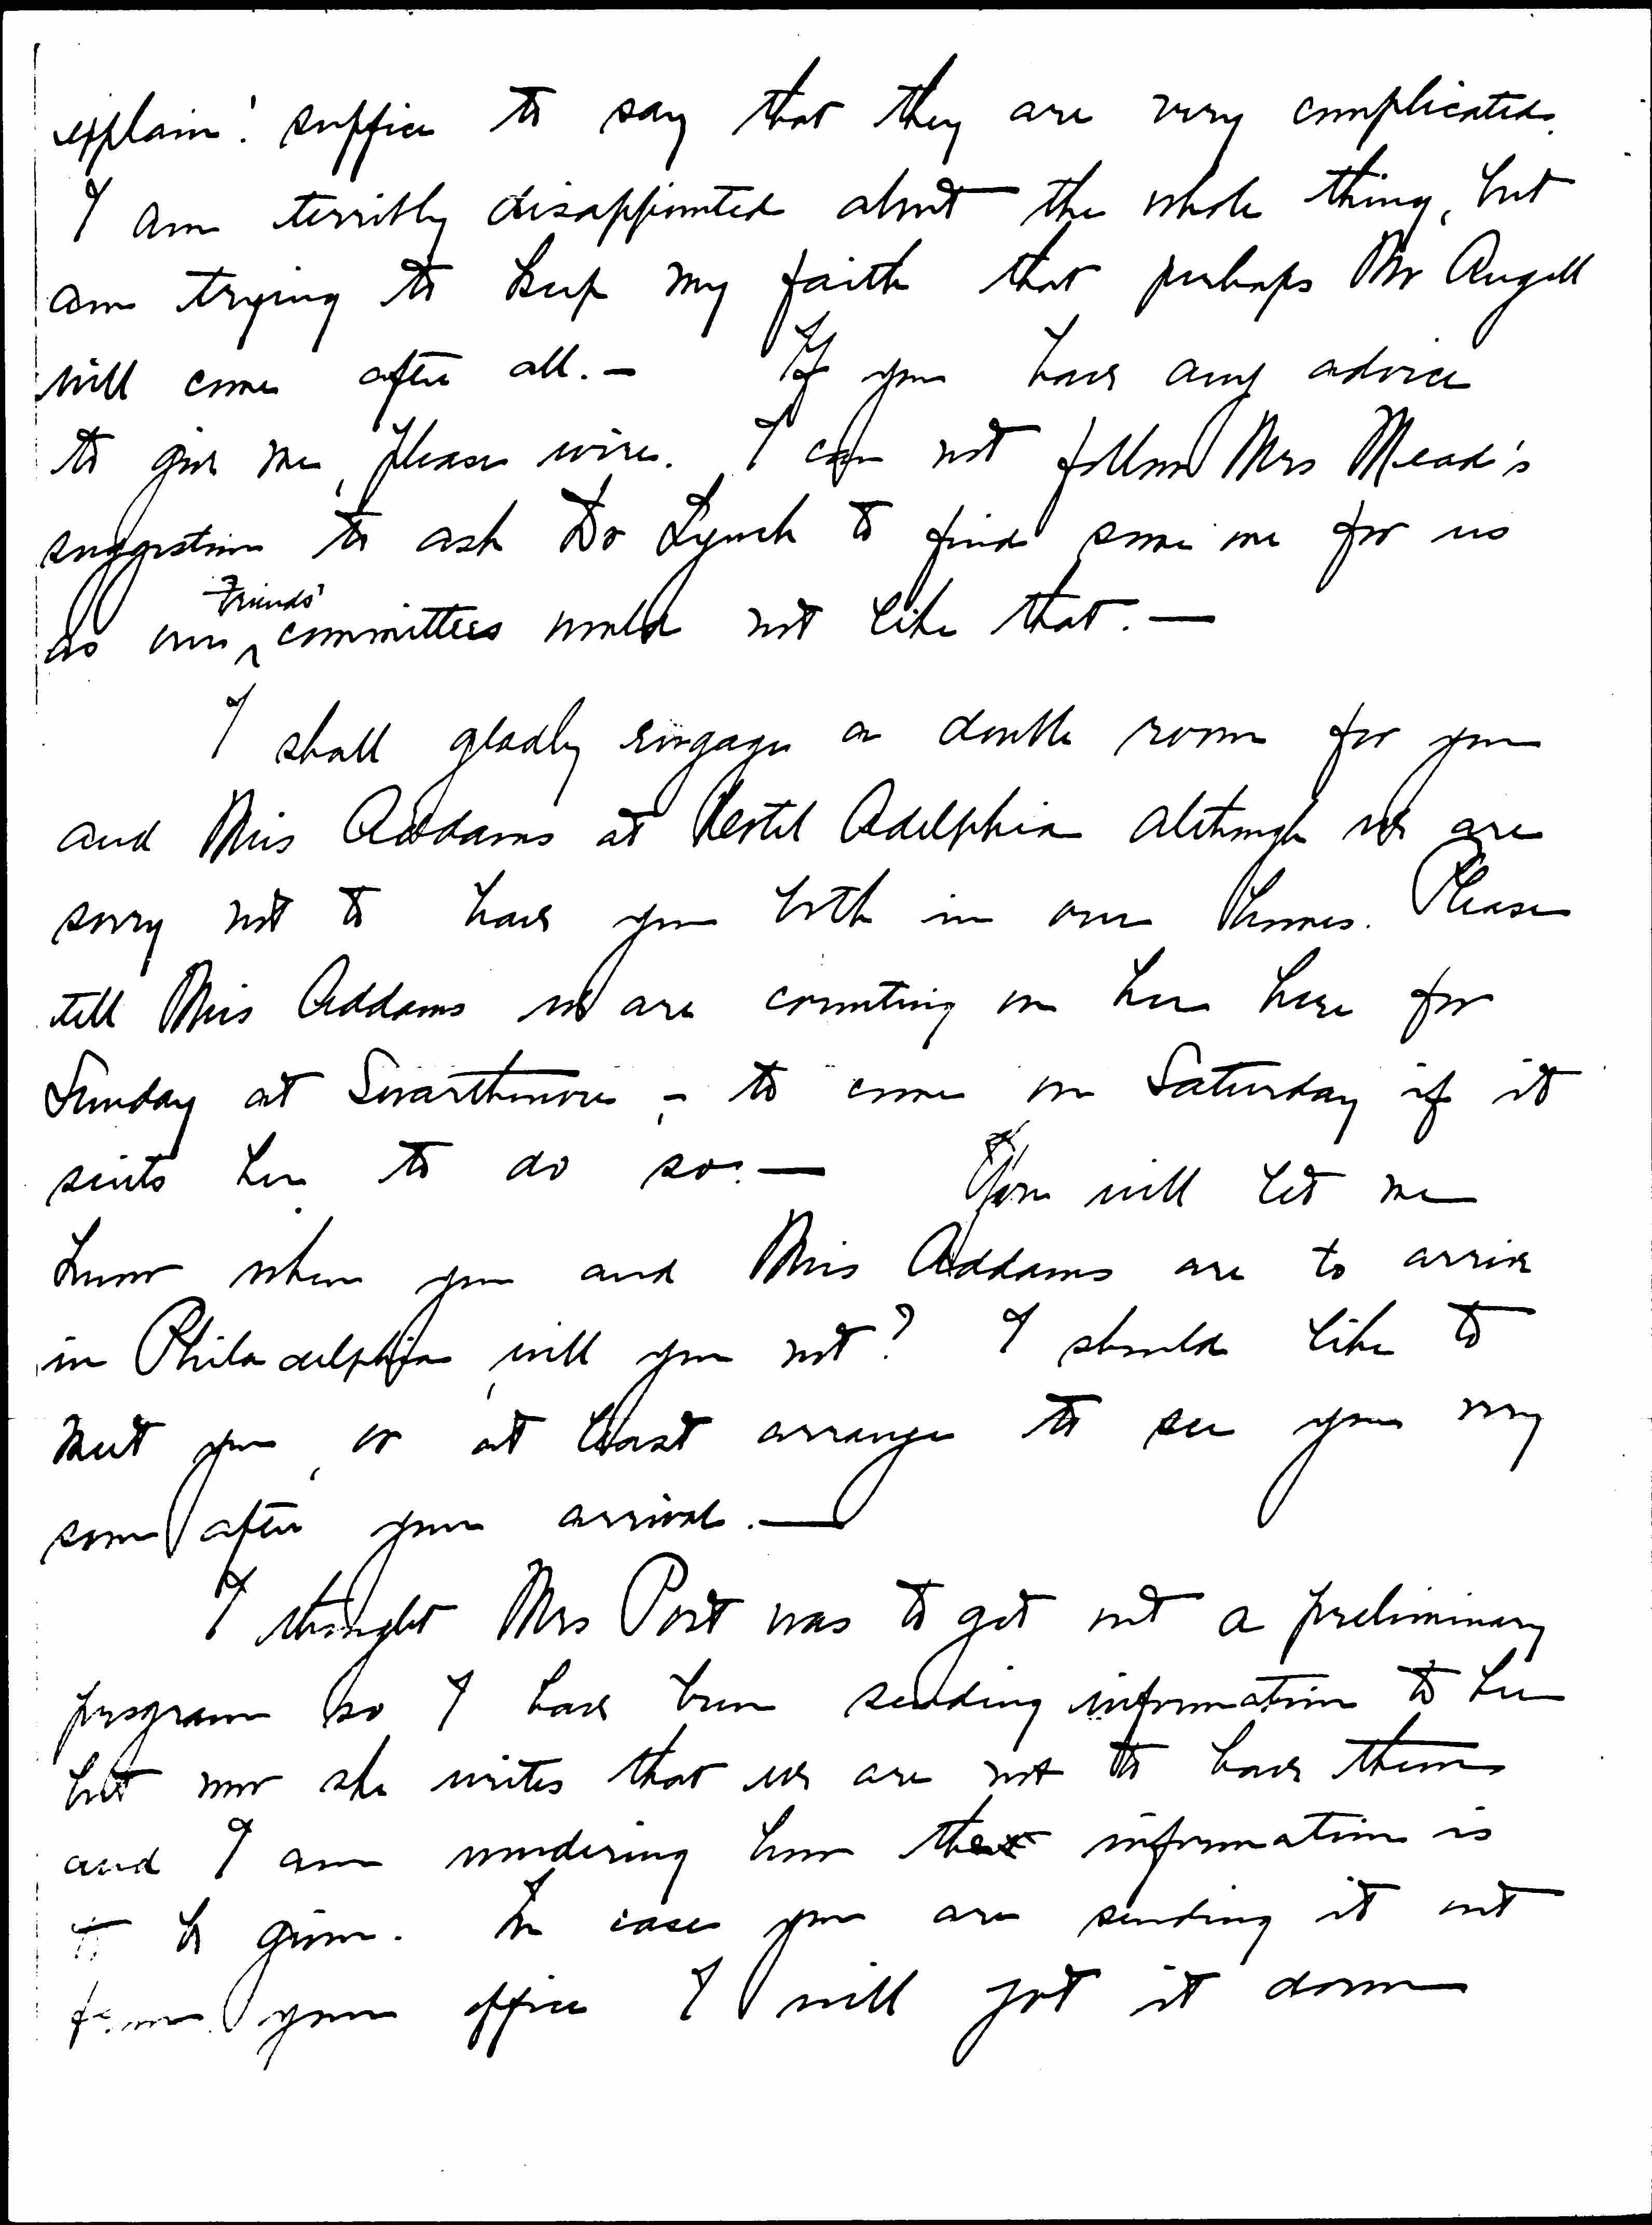 explain! suffice to say that they are very complicated.
I am terribly disappointed about the whole thing, but
am trying to keep my faith that perhaps Mr Angell
will come after all. — If you have any advice
to give me, please wire. I can not follow Mrs Mead's
suggestion to ask Dr Lynch to find some one for us
Friends'
as our ^ committees would not like that. —
I shall gladly engage a double room for you
and Miss Addams at Hotel Adelphia although we are
sorry not to have you both in our homes. Please
tell Miss Addams we are counting on her here for
Sunday at Swarthmore, - to come on Saturday if it
suits her to do so. — You will let me
know when you and Miss Addams are to arrive
in Philadelphia, will you not? I should like to
meet you, or at least arrange to see you very
soon after your arrival. —
I thought Mrs Post was to get out a preliminary
program so I have been sending information to her
but now she writes that we are not to have them
and I am wondering how the information is
to be given. In case you are sending it out
from your office I will jot it down